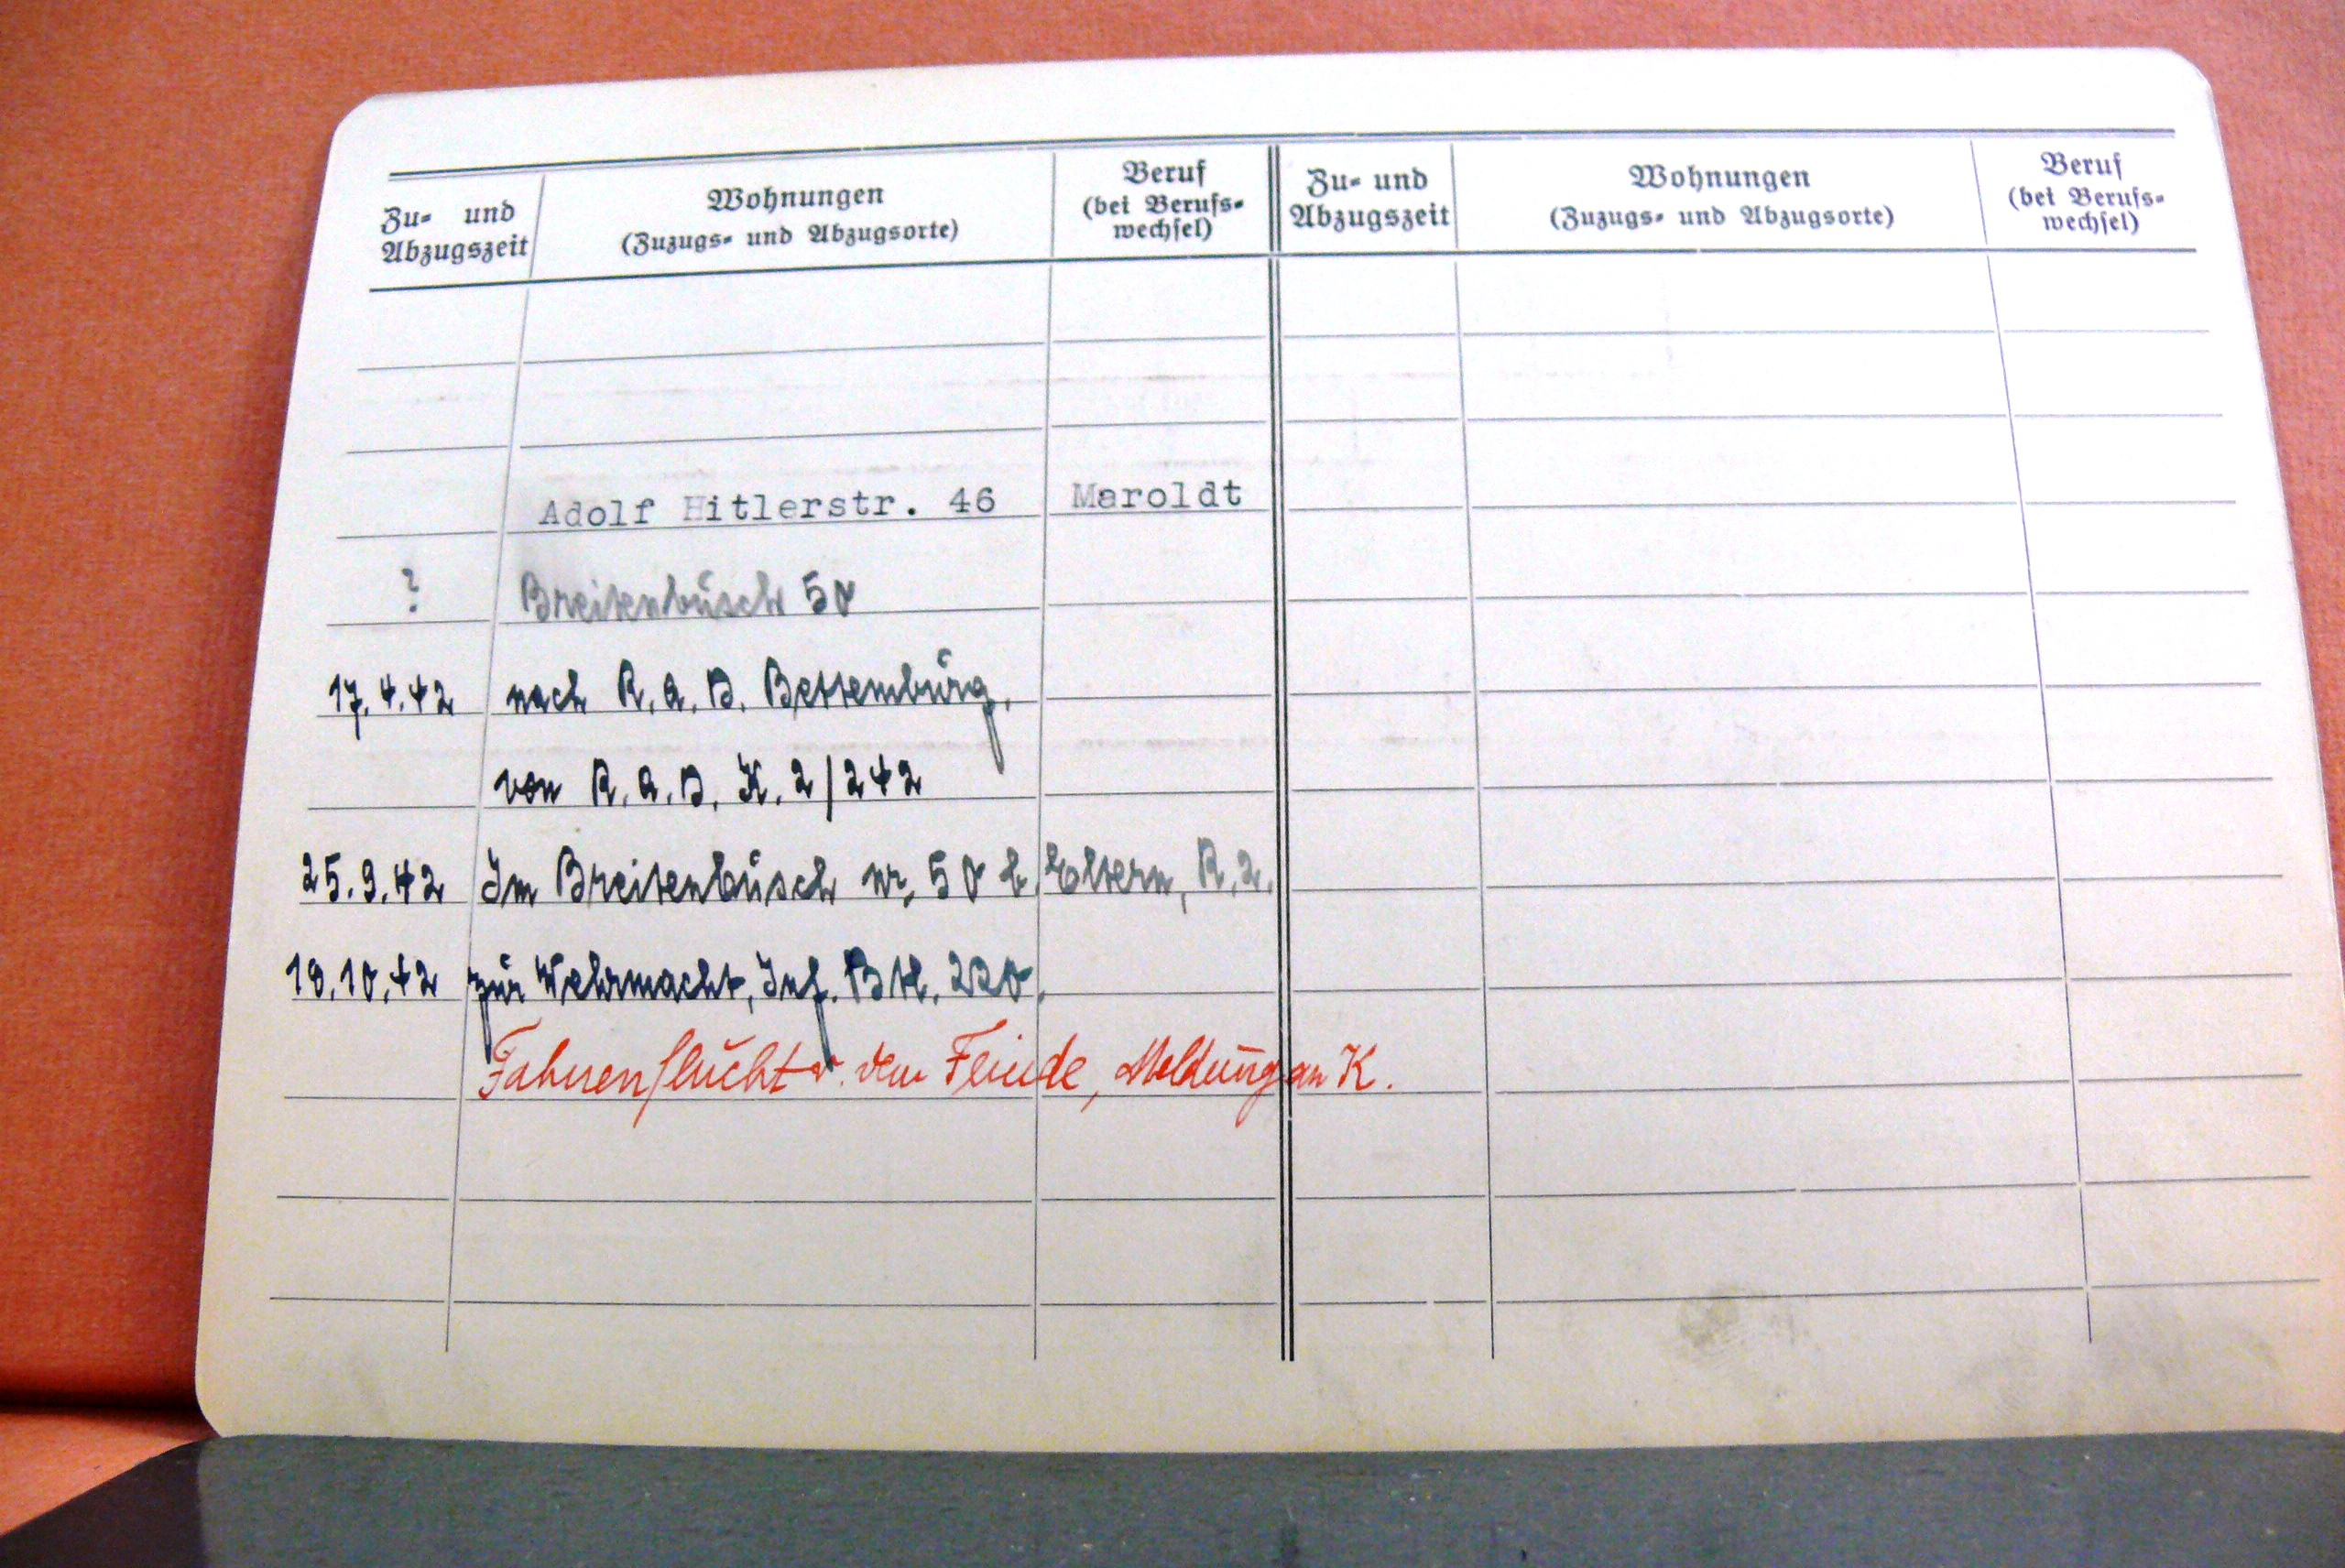 Zu- und Abzugszeit
Wohnungen
(Zuzugs- und Abzugsorte)
Beruf
(bei Berufs-
wechsel)
Zu- und
Abzugszeit
Wohnungen
(Zuzugs- und Abzugsorte)
Beruf
(bei Berufs-
wechsel)
Adolf Hitlerstr. 46 Maroldt
? Breitenbusch 50
17.4.42 nach R.A.D. Bettemburg.
von R.A.D. K. 2/242
25.9.42 Im Breitenbusch nr. 50 b. Eltern, R.2.
18.10.42 zur Wehrmacht, Inf. Btl. 220.
Fahnenflucht v. dem Feinde, Meldung an K.